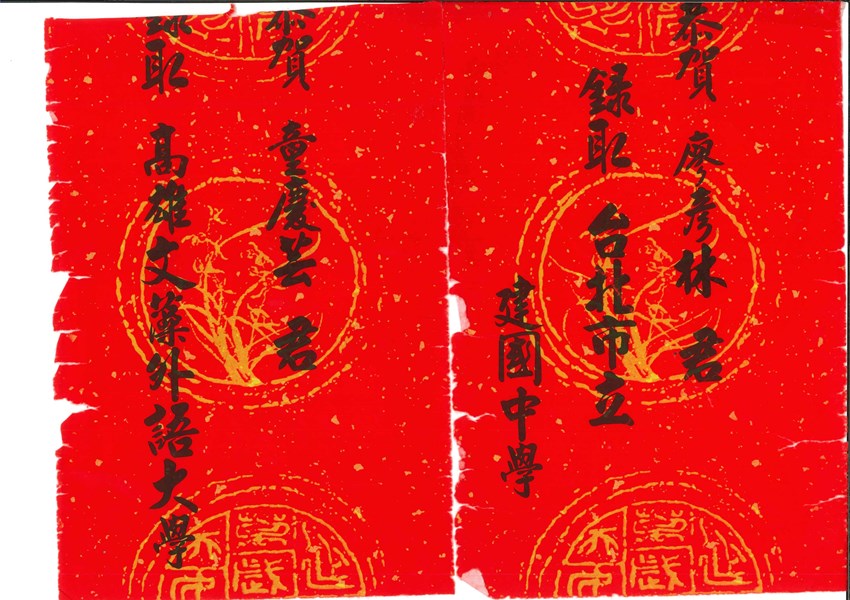 恭賀 廖彥林 君
錄取 台北市立
建國中學
恭賀 童慶芸 君
錄取 高雄文藻外語大學